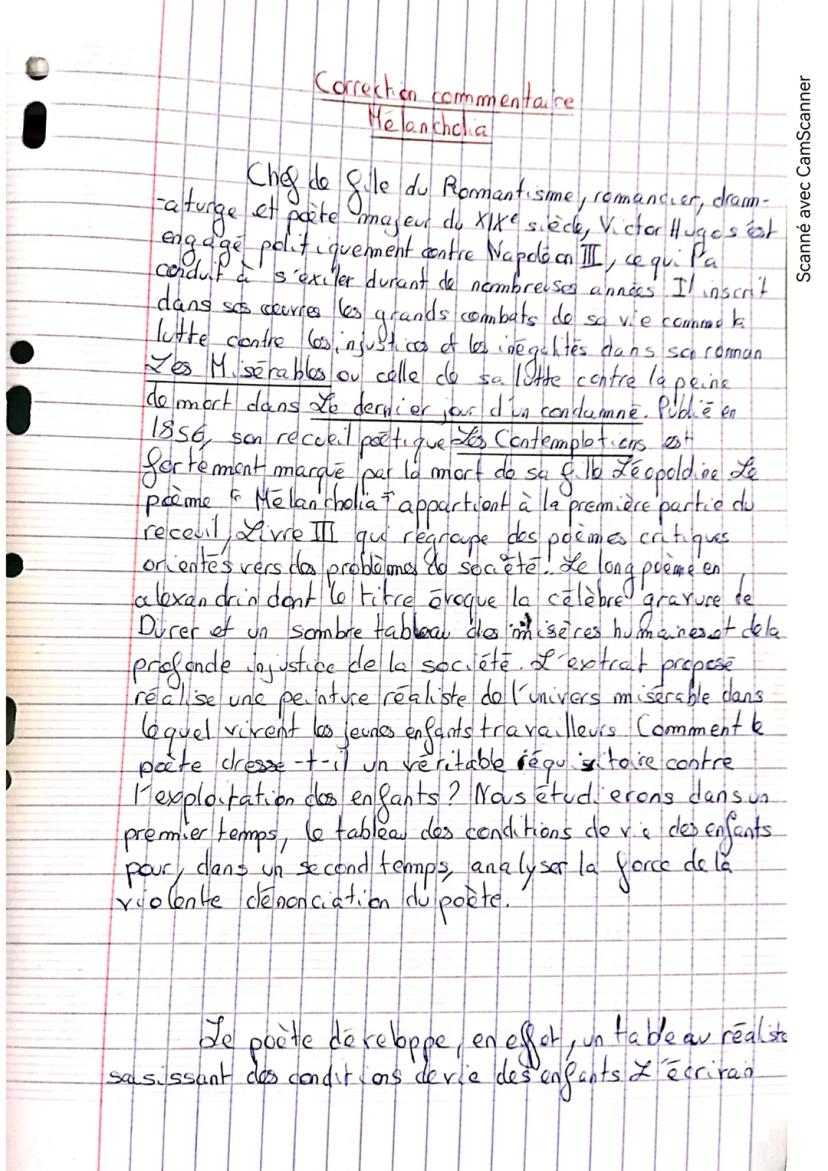 Correction commentaire
Mélancholia
Chef de file du Romantisme, romancier, dram-
-aturge et poète majeur du XIXe siècle, Victor Hugo s'est
engagé politiquement contre Napoléon III, ce qui l'a
conduit à s'exiler durant de nombreuses années. Il inscrit
dans ses œuvres les grands combats de sa vie comme la
lutte contre les injustices et les inégalités dans son roman
Les Misérables ou celle de sa lutte contre la peine
de mort dans Le dernier jour d'un condamné. Publié en
1856, son recueil poétique Les Contemplations est
fortement marqué par la mort de sa fille Léopoldine Le
poème "Mélancholia" appartient à la première partie du
receuil, Livre III qui regroupe des poèmes critiques
orientés vers des problèmes de société. Le long poème en
alexandrin dont le titre évoque la célèbre gravure de
Dürer et un sombre tableau des misères humaines et de la
profonde injustice de la société. L'extrait proposé
réalise une peinture réaliste de l'univers misérable dans
lequel vivent les jeunes enfants travailleurs. Comment le
poète dresse-t-il un véritable réquisitoire contre
l'exploitation des enfants ? Nous étudierons dans un
premier temps, le tableau des conditions de vie des enfants
pour, dans un second temps, analyser la force de la
violente dénonciation du poète.
Le poète développe, en effet, un tableau réaliste
saisissant des conditions de vie des enfants L'écrivain
Scanné avec CamScanner